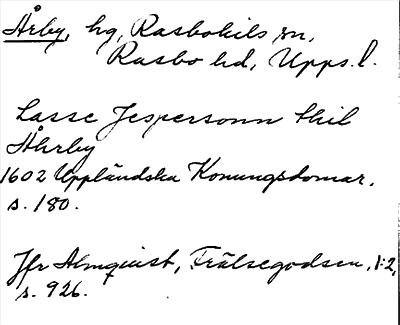 Årby, hg, Rasbokils sn,
Rasbo hd, Upps. l.
Lasse Jespersonn thil
Åhrby
1602 Uppländska Konungsdomar,
s. 180.
Jfr Almquist, Frälsegodsen, 1:2,
s. 926.